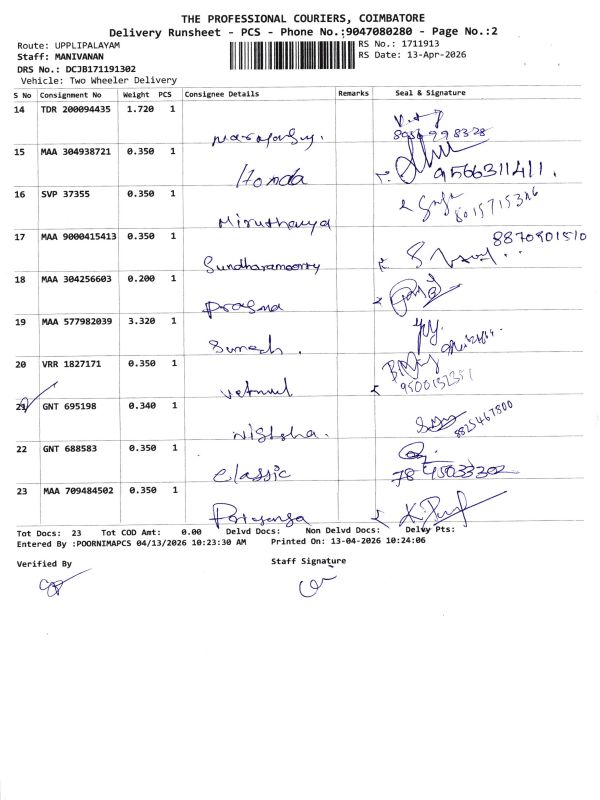 THE PROFESSIONAL COURIERS, COIMBATORE
Delivery Runsheet - PCS - Phone No.:9047080280 - Page No.:2
Route: UPPLIPALAYAM RS No.: 1711913
Staff: MANIVANAN RS Date: 13-Apr-2026
DRS No.: DCJB171191302
Vehicle: Two Wheeler Delivery
S No Consignment No Weight PCS Consignee Details Remarks Seal & Signature
14 TDR 200094435 1.720 1
15 MAA 304938721 0.350 1
Honda 9566311411.
16 SVP 37355 0.350 1
Miruthanya 8015715346
17 MAA 9000415413 0.350 1 8870901510
Sundharamoorty
18 MAA 304256603 0.200 1
19 MAA 577982039 3.320 1
Suresh.
20 VRR 1827171 0.350 1
9500132351
21 GNT 695198 0.340 1
8825467800
22 GNT 688583 0.350 1
Classic 7845033302
23 MAA 709484502 0.350 1
Tot Docs: 23 Tot COD Amt: 0.00 Delvd Docs: Non Delvd Docs: Delvy Pts:
Entered By :POORNIMAPCS 04/13/2026 10:23:30 AM Printed On: 13-04-2026 10:24:06
Verified By Staff Signature